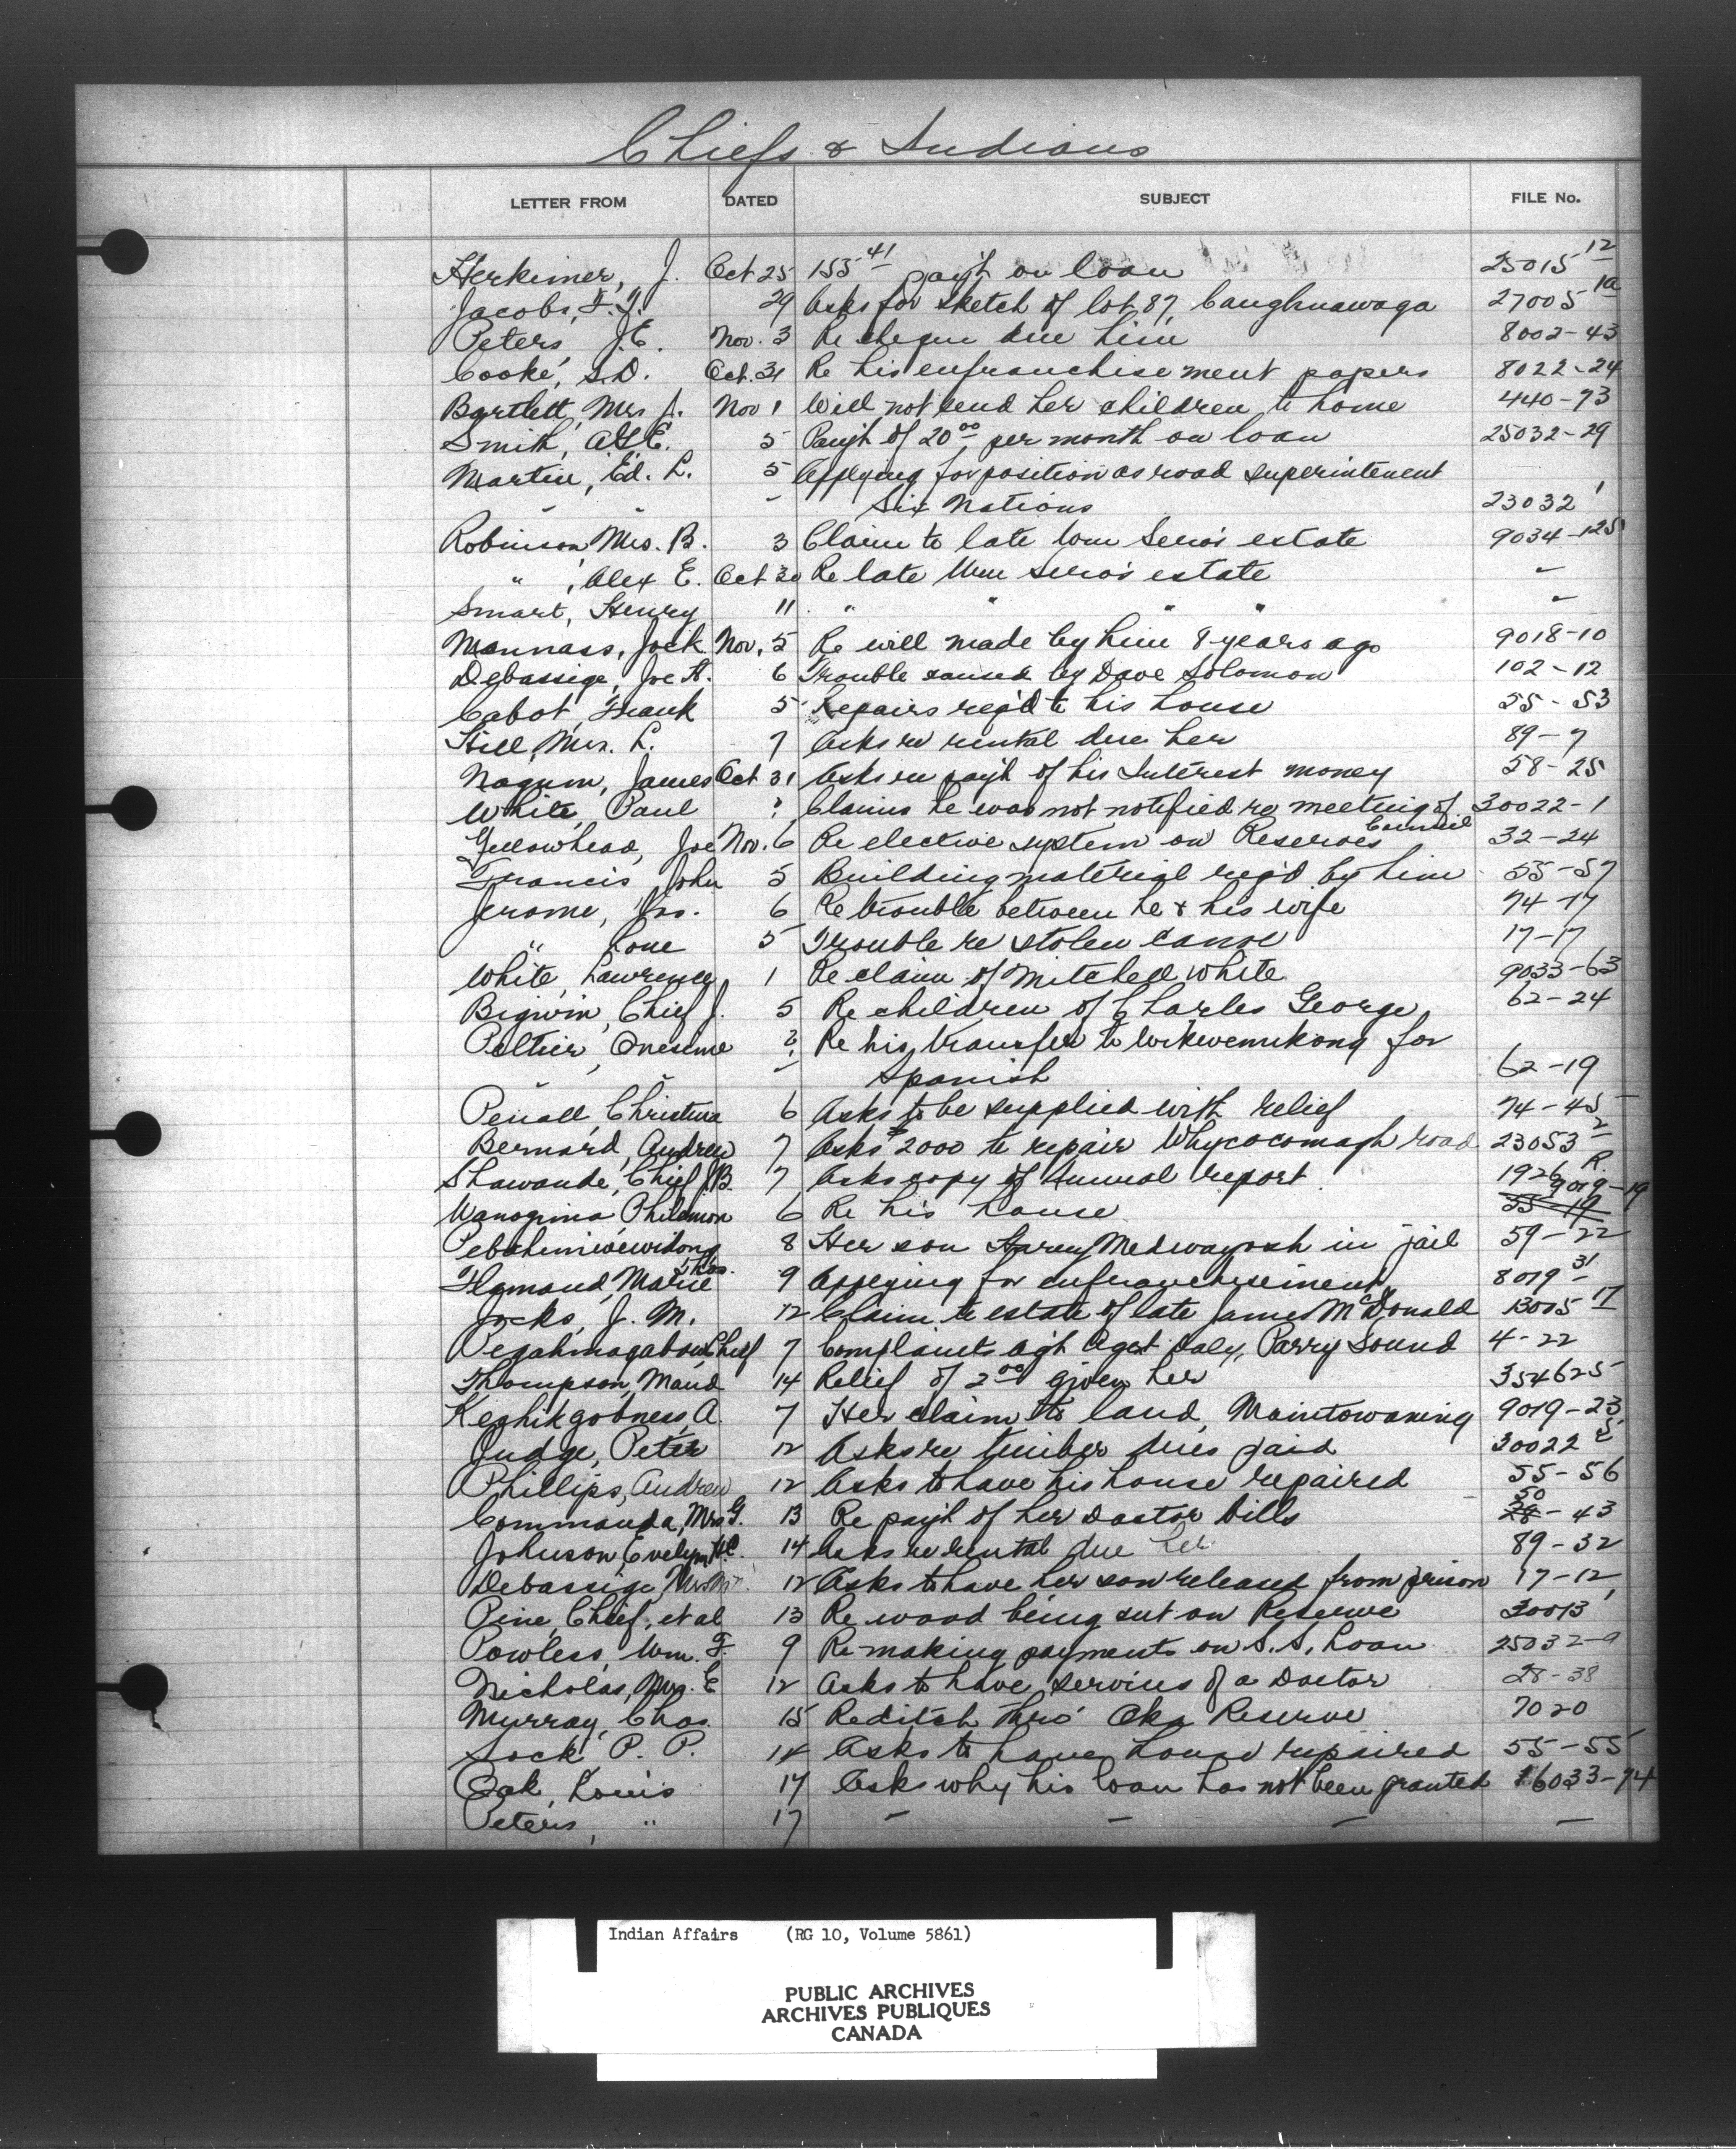 Chiefs & Indians
LETTER FROM DATED SUBJECT FILE No.
Herkimer, J. Oct 25 155 41 pay't on loan 25015 12
Jacobs, F. J. 29 Asks for sketch of lot 87, Caughnawaga 27005 10
Peters J.E. Nov. 3 Re cheque due him 8002-43
Cooke, S.D. Oct. 31 Re his enfranchisement papers 8022-24
Bartlett, Mrs J. Nov 1 Will not send her children to home 440-73
Smith, A.G.E. 5 Pay't of 20 00 per month on loan 25032-29
Martin, Ed. L. 5 Applying for position as road superintenent
" " - Six Nations 23032 1
Robinson Mrs. B. 3 Claim to late Wm Sero's estate 9034-125
" , Alex E. Oct 30 Re late Wm Sero's estate "
Smart, Henry 11 " " " " "
Mannass, Jack Nov. 5 Re will made by him 8 years ago 9018-10
Debassige, Joe A. 6 Trouble caused by Dave Solomon 102-12
Cabot, Frank 5 Repairs req'd to his house 55-53
Hill, Mrs. L. 7 Asks re rental due her 89-7
Nagum, James Oct 31 Asks re pay't of his Interest money 58-25
White, Paul ? Claims he was not notified re meeting of Council 30022-1
Yellowhead, Joe Nov. 6 Re elective system on Reserves 32-24
Francis John 5 Building material req'd by him 55-57
Jerome, Jas. 6 Re trouble between he & his wife 74-17
" Lone 5 Trouble re stolen canoe 17-17
White, Lawrence 1 Re claim of Mitchell White 9033-63
Bigwin, Chief J. 5 Re children of Charles George 62-24
Peltier, Onesime ? Re his transfer to Wikwemikong for
" " Spanish 62-19
Penall, Christina 6 Asks to be supplied with relief 74-45
Bernard, Andrew 7 Asks $2000 to repair Whycocomagh road 23053 2
Shawande, Chief J.B. 7 Asks copy of Annual report 1926 R.
Wanogima, Philemon 6 Re his house 55-19 9019-19
Pebahmiwewidong, Thos. 8 Her son Harry Medwayosh in jail 59-22
Flamand, Marie 9 Applying for enfranchisement 8019 31
Jocks, J. M. 12 Claim to estate of late James McDonald 13005 17
Pegahmagabow, Chief 7 Complaints ag't Agt Daly, Parry Sound 4-22
Thompson, Maud 14 Relief of 2 00 given her 354625
Keghikgobness, A. 7 Her claim to land, Maintowaning 9019-23
Judge, Peter 12 Asks re timber dues paid 30022 5
Phillips, Andrew 12 Asks to have his house repaired 55-56
Commanda, Mrs G. 13 Re pay't of her Doctor bills 28 50-43
Johnson, Evelyn H.C. 14 Asks re rental due her 89-32
Debassige, Mrs M. 12 Asks to have her son released from prison 17-12
Pine, Chief, et al 13 Re wood being cut on Reserve 30013 1
Powless, Wm. F. 9 Re making payments on S.S. Loan 25032-9
Nicholas, Mrs. E 12 Asks to have services of a Doctor 28-38
Murray, Chas. 15 Re ditch thro' Oka Reserve 7020
Sock P. P. 14 Asks to have house repaired 55-55
Oak, Louis 17 Asks why his loan has not been granted 16033-74
Peters, " 17 " " " "
Indian Affairs (RG 10, Volume 5861)
PUBLIC ARCHIVES
ARCHIVES PUBLIQUES
CANADA